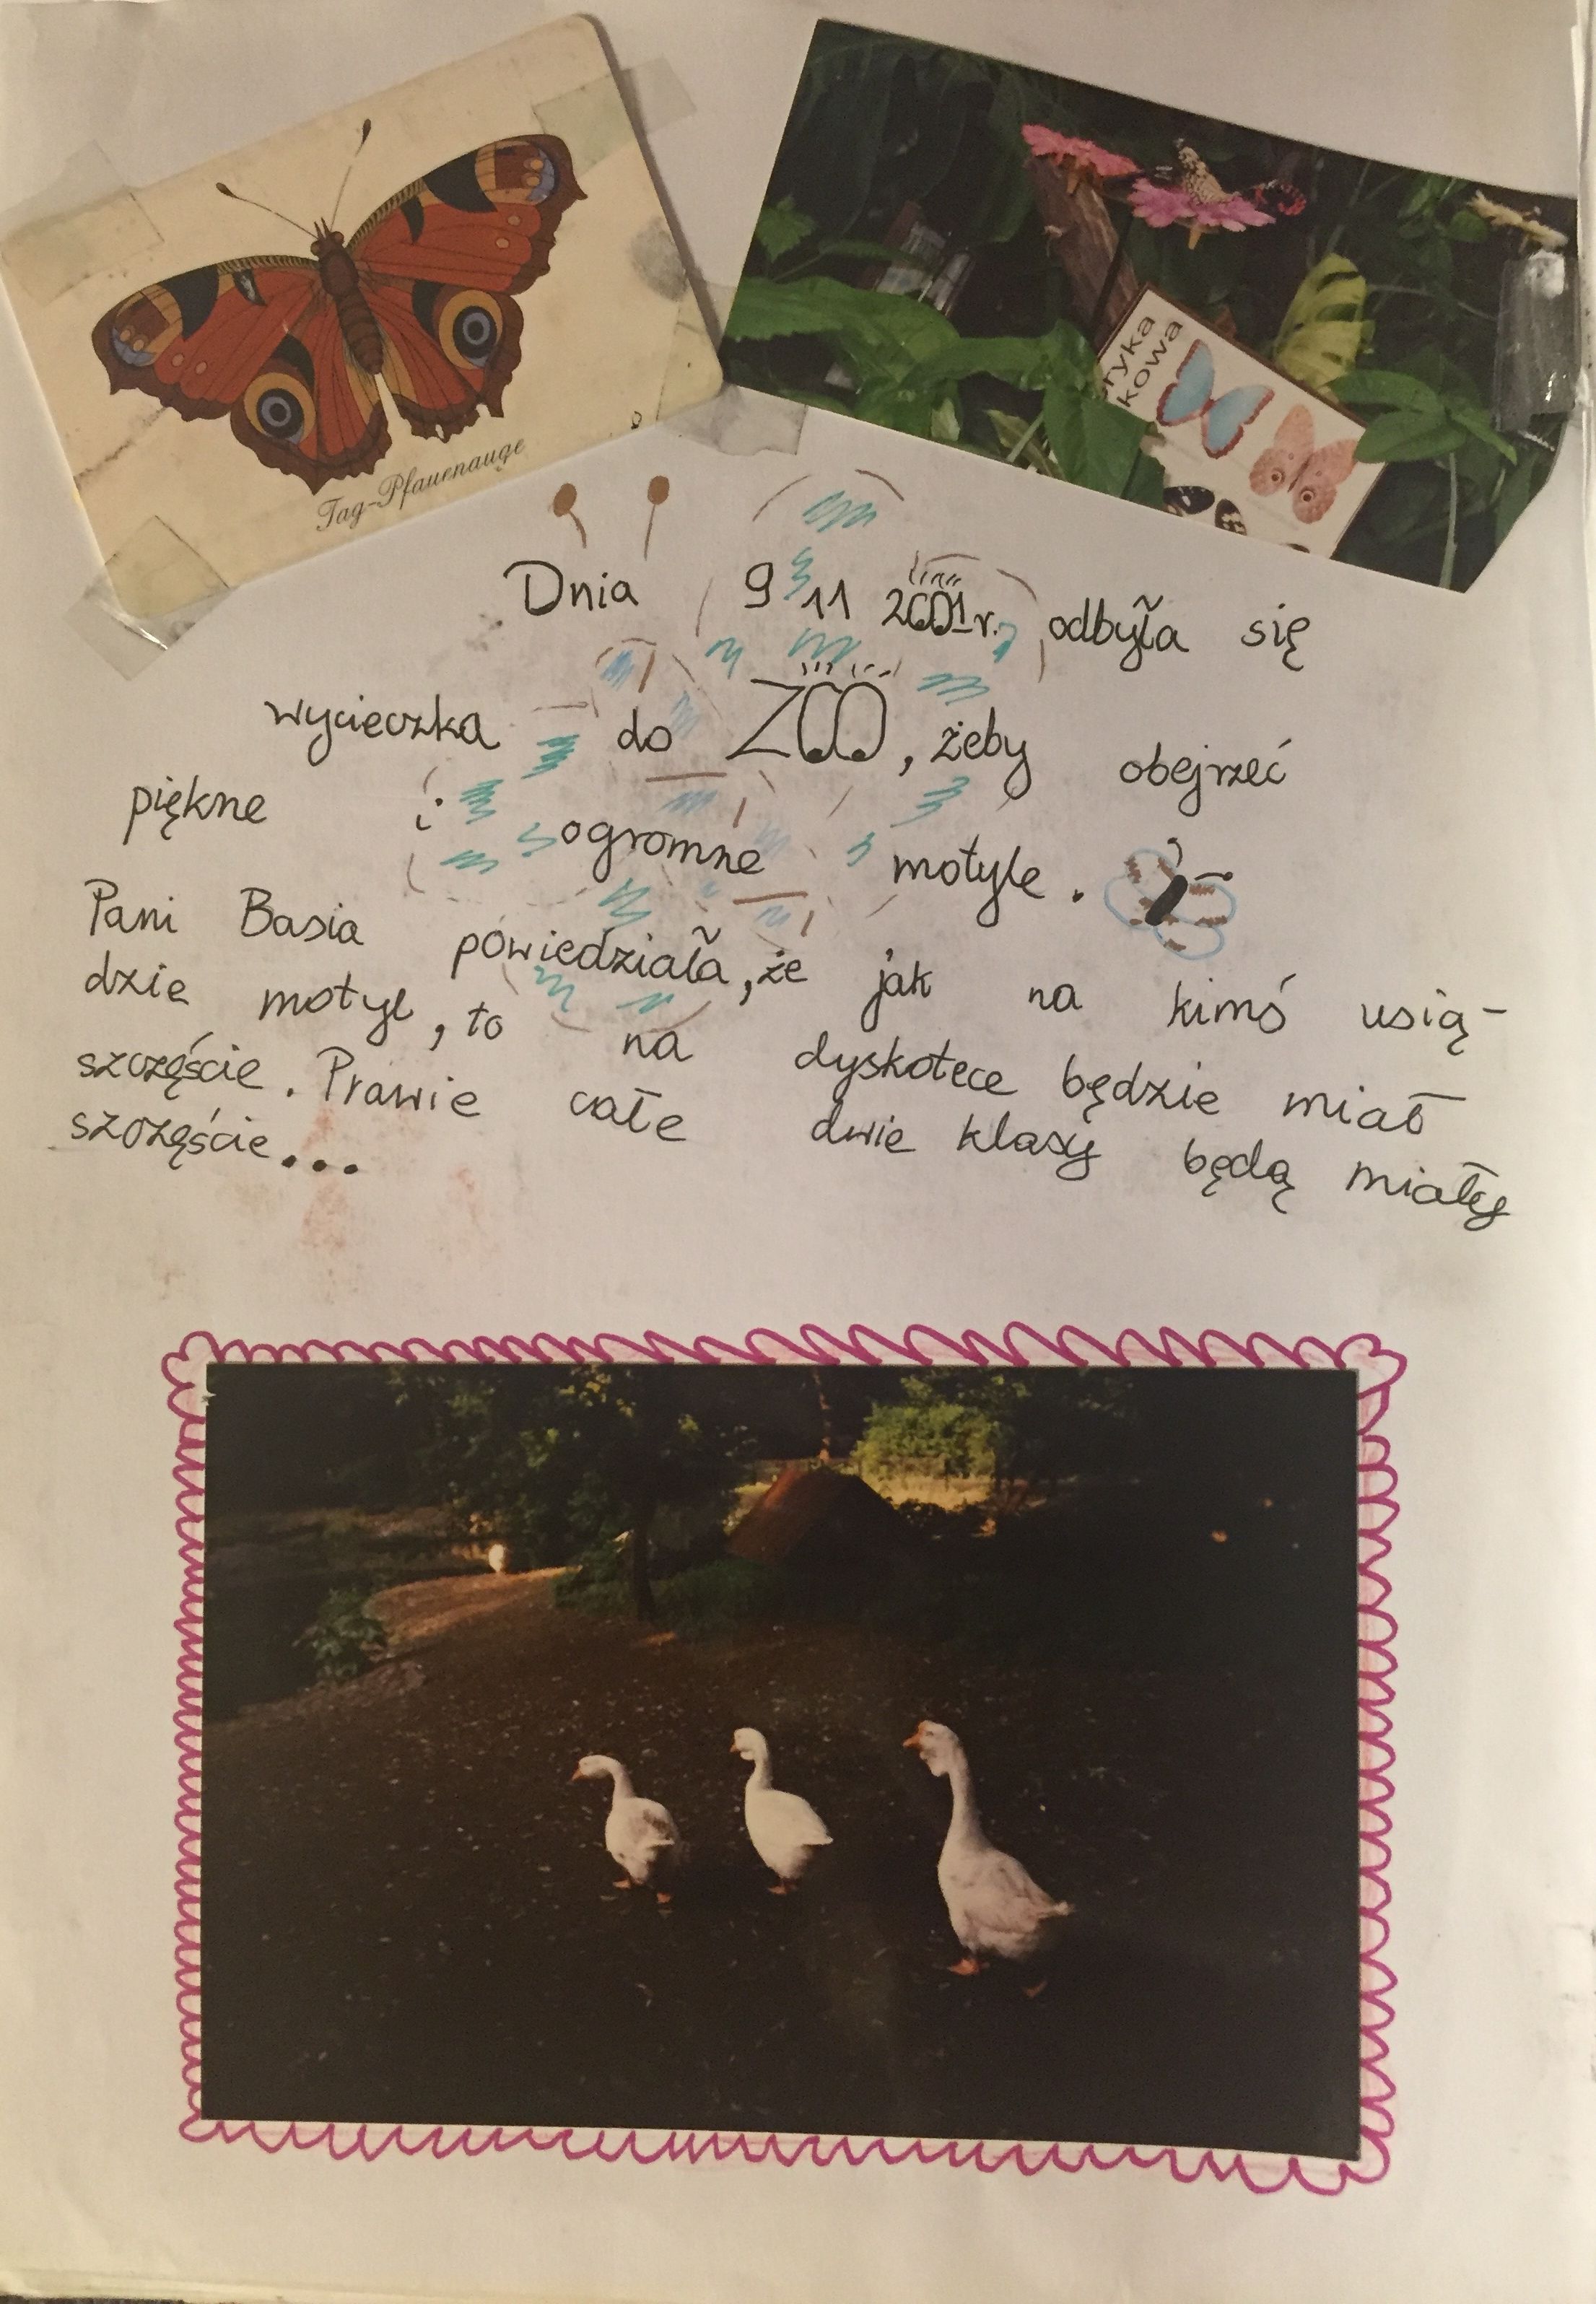 Tag-Pfauenauge
ryka
kowa
Dnia 9 11 2001r. odbyła się
wycieczka do ZOO, żeby obejrzeć
piękne i ogromne motyle.
Pani Basia powiedziała, że jak na kimś usią-
dzie motyl, to na dyskotece będzie miał
szczęście. Prawie całe dwie klasy będą miały
szczęście...